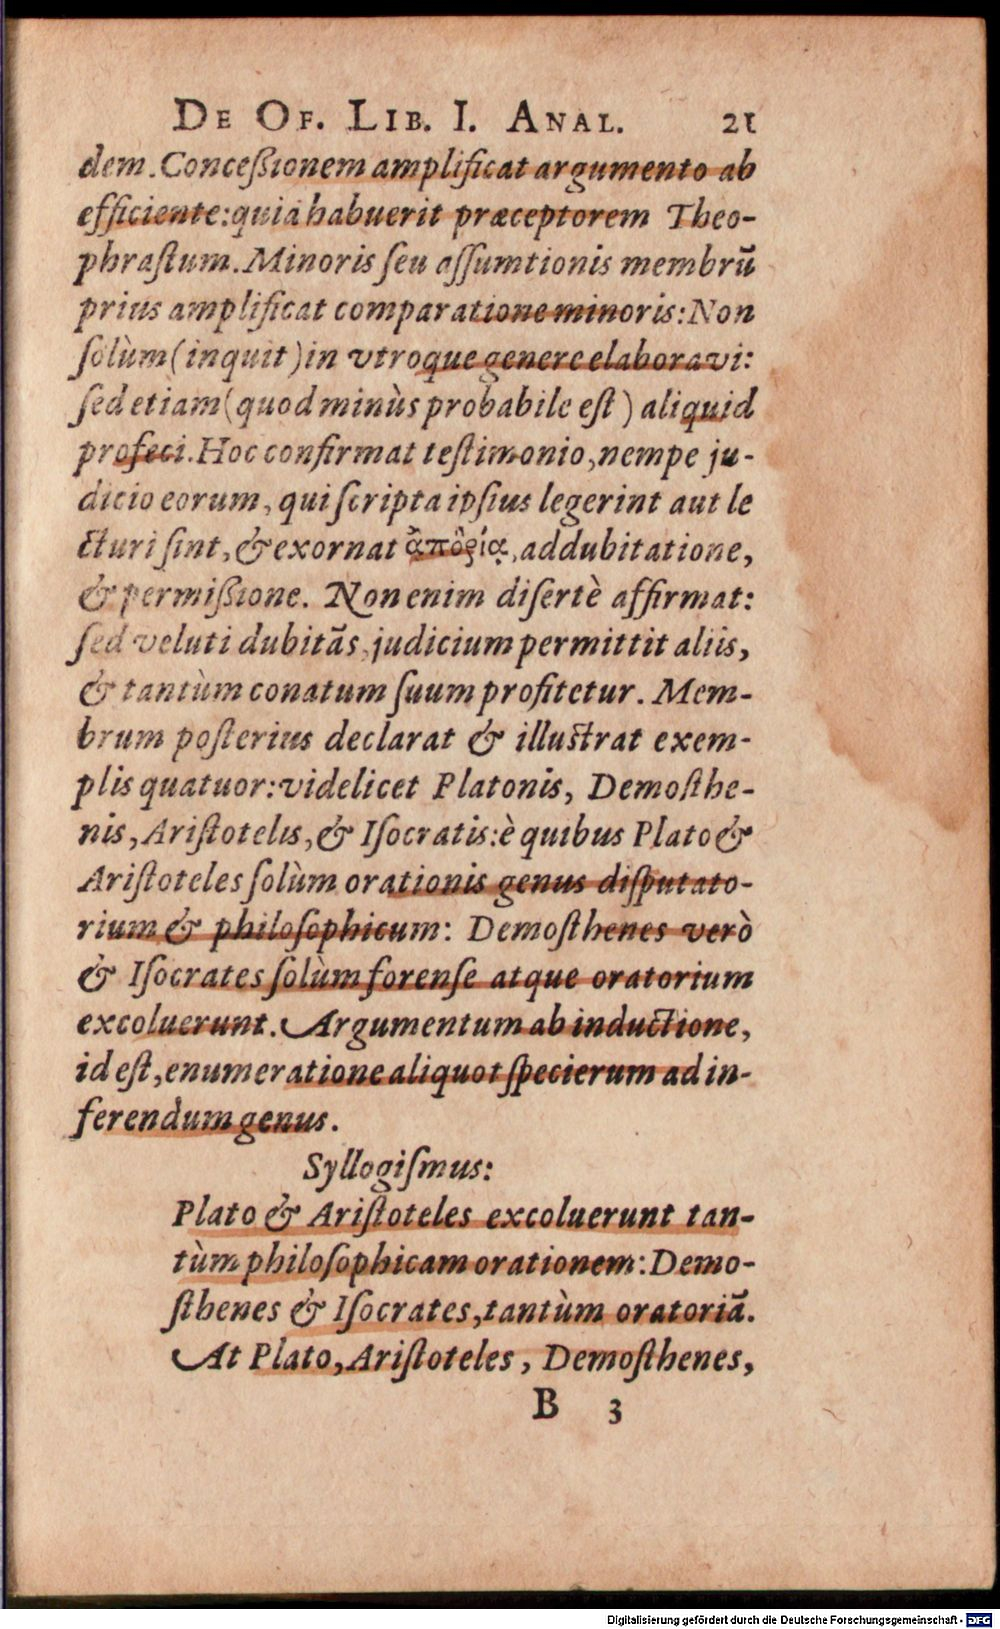 DE OF. LIB. I. ANAL. 21
dem. Conceſſionem amplificat argumento ab
efficiente: quia habuerit præceptorem Theo-
phraſtum. Minoris ſeu aſſumtionis membrū
prius amplificat comparatione minoris: Non
ſolùm (inquit) in vtroque genere elaboravi:
ſed etiam (quod minùs probabile eſt) aliquid
profeci. Hoc confirmat teſtimonio, nempe ju-
dicio eorum, qui ſcripta ipſius legerint aut le
cturi ſint, & exornat ἀποϱίᾳ, addubitatione,
& permiſſione. Non enim diſertè affirmat:
ſed veluti dubitãs, judicium permittit aliis,
& tantùm conatum ſuum profitetur. Mem-
brum poſterius declarat & illuſtrat exem-
plis quatuor: videlicet Platonis, Demoſthe-
nis, Ariſtotelis, & Iſocratis: è quibus Plato &
Ariſtoteles ſolùm orationis genus diſputato-
rium & philoſophicum: Demoſthenes verò
& Iſocrates ſolùm forenſe atque oratorium
excoluerunt. Argumentum ab inductione,
id eſt, enumeratione aliquot ſpecierum ad in-
ferendum genus.
Syllogiſmus:
Plato & Ariſtoteles excoluerunt tan-
tùm philoſophicam orationem: Demo-
ſthenes & Iſocrates, tantùm oratoriã.
At Plato, Ariſtoteles, Demoſthenes,
B 3
Digitalisierung gefördert durch die Deutsche Forschungsgemeinschaft - DFG